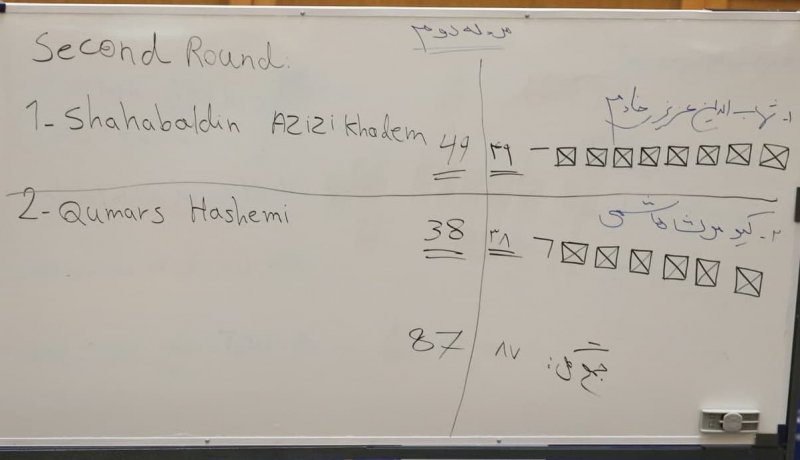 Second Round:
مرحله دوم
1- Shahabaldin Azizi Khadem 49
۱- شهاب الدین عزیزی خادم
۴۹
2- Qumars Hashemi 38
۲- کیومرث هاشمی
۳۸
87
۸۷
جمع کل: